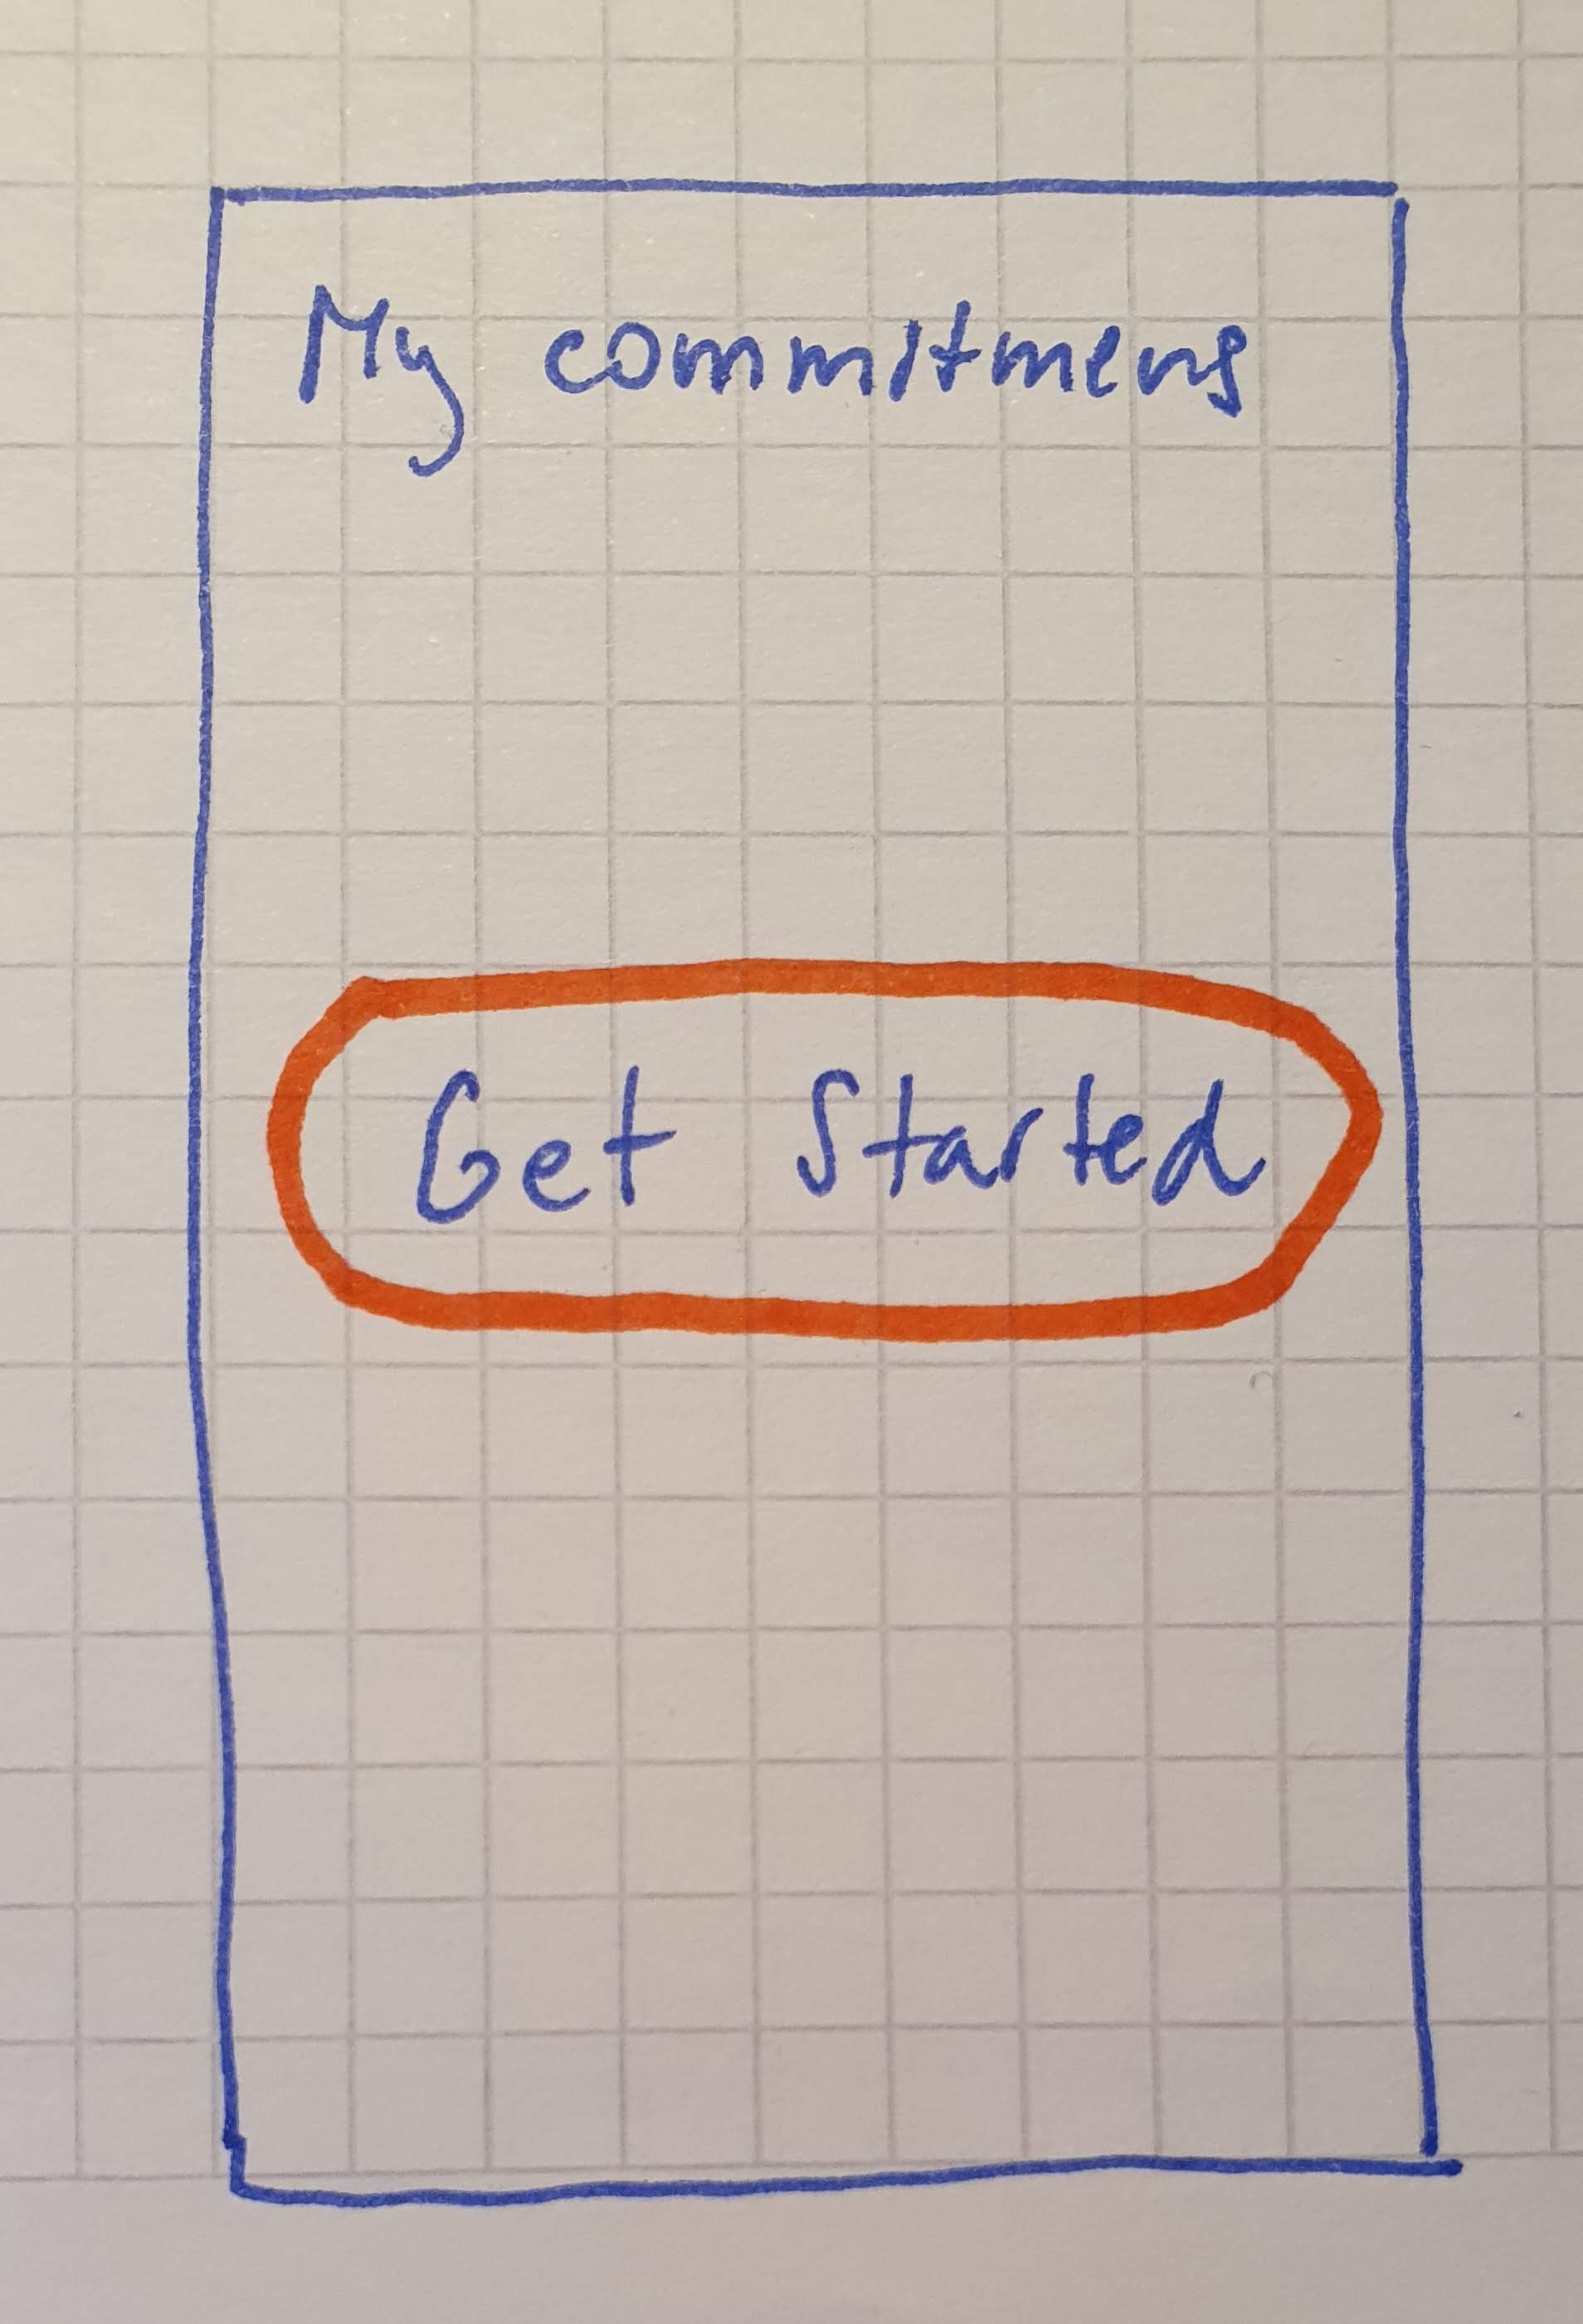 My commitmens
Get Started